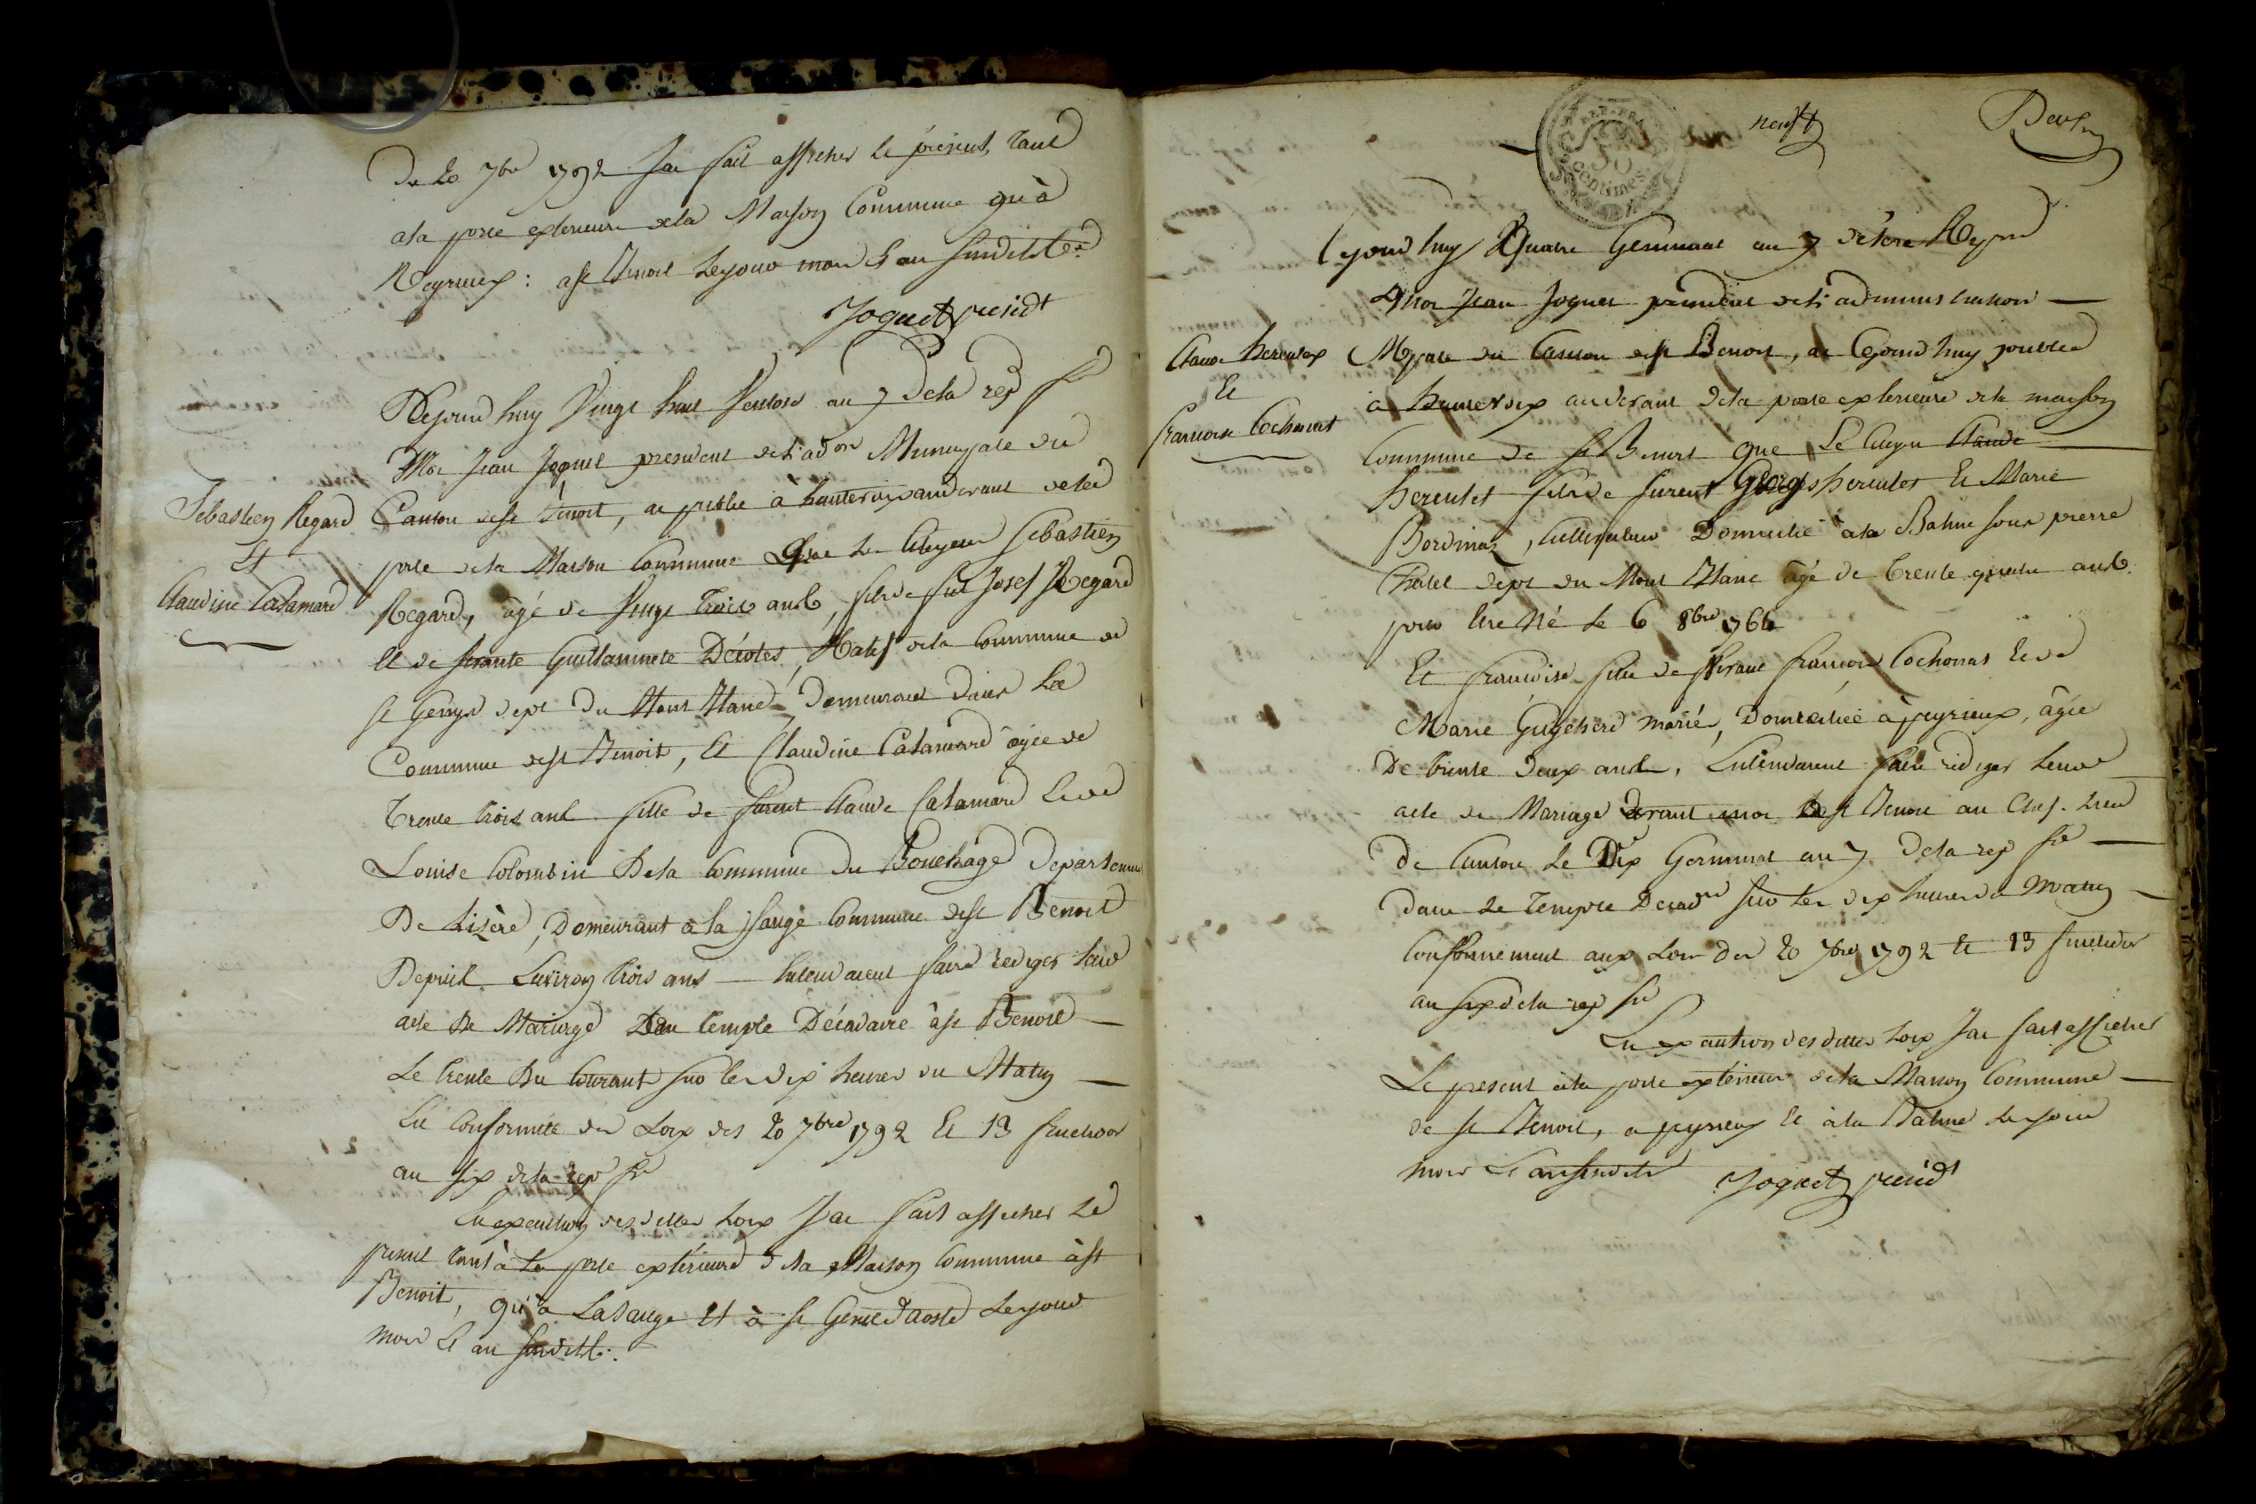 du 20 7bre 1792 J'ai fait afficher le présent, tant
a la porte exterieure de la Maison Commune qu'à
Peyrieux : a St Benoit le jour mois & an susdits
Joguet présidt
Cejourd'huy Vingt huit Ventose an 7 de la rep fse
Moi Jean Joguet president de l'adon Municipale du
Sebastien Regard
Et
Claudine Catamard
Canton de St Benoit, ai publié à haute voix audevant de la
porte de la Maison Commune Que le Citoyen Sebastien
Regard, âgé de Vingt trois ans, fils de feu Josef Regard
Et de vivante Guillaumete Décotes, Natif de la Commune de
St Genix dept du Mont Blanc, Demeurant dans La
Commune de St Benoit, Et Claudine Catamard âgée de
Trente trois ans fille de furent Claude Catamard Et de
Louise Colombin De la Commune du Bouchage Departement
De Lizère, Domeurant à la Sauge Commune de St Benoit
Depuis Environ trois ans — Entendaient faire rediger leur
acte De Mariage Dans temple Décadaire à St Benoit —
Le trente Du Courant sur les dix heures du Matin —
En Conformité des Loix des 20 7bre 1792 Et 13 fructidor
an six de la rep fse
En execution desdittes Loix J'ai fait afficher Le
present tant à la porte extérieure de la Maison Commune à St
Benoit, qu'à La Sauge Et à St Genie d'aoste Le jour
mois Et an susdits.
neuf
Cejourd'huy Quatre Germinal an 7 de l'ere Rep
Moi Jean Joguet president de l'administration —
Claude herculex
Et
francoise Cochonat
Mpale du Canton de St Benoit, ai Cejourd'huy publié
à haute voix audevant de la porte exterieure de la maison
Commune de St Benoit que Le Citoyen Claude
herculet fils de furent George herculet Et Marie
Bordinaz, Cultivateur Domicilié à la Balme sous pierre
Chatel dept du Mont Blanc âgé de trente quatre ans
pour être Né le 6 8bre 1764
Et francoise fille de vivant francois Cochonat Et de
Marie Guigeherd mariés, Domiciliée à peyrieux, âgée
De trente deux ans, Entendaient faire rediger leur
acte de Mariage devant moi à St Benoit au Chef-Lieu
de Canton Le Dix Germinal an 7 de la rep fse —
dans Le Temple Decadre sur les dix heures du Matin —
Conformement aux Loix des 20 7bre 1792 Et 13 fructidor
an six de la rep fse
En execution desdittes Loix J'ai fait afficher
Le present à la porte extérieure de la Maison Commune —
de St Benoit, a peyrieux Et à la Balme Le jour
mois Et an susdits Joguet présidt